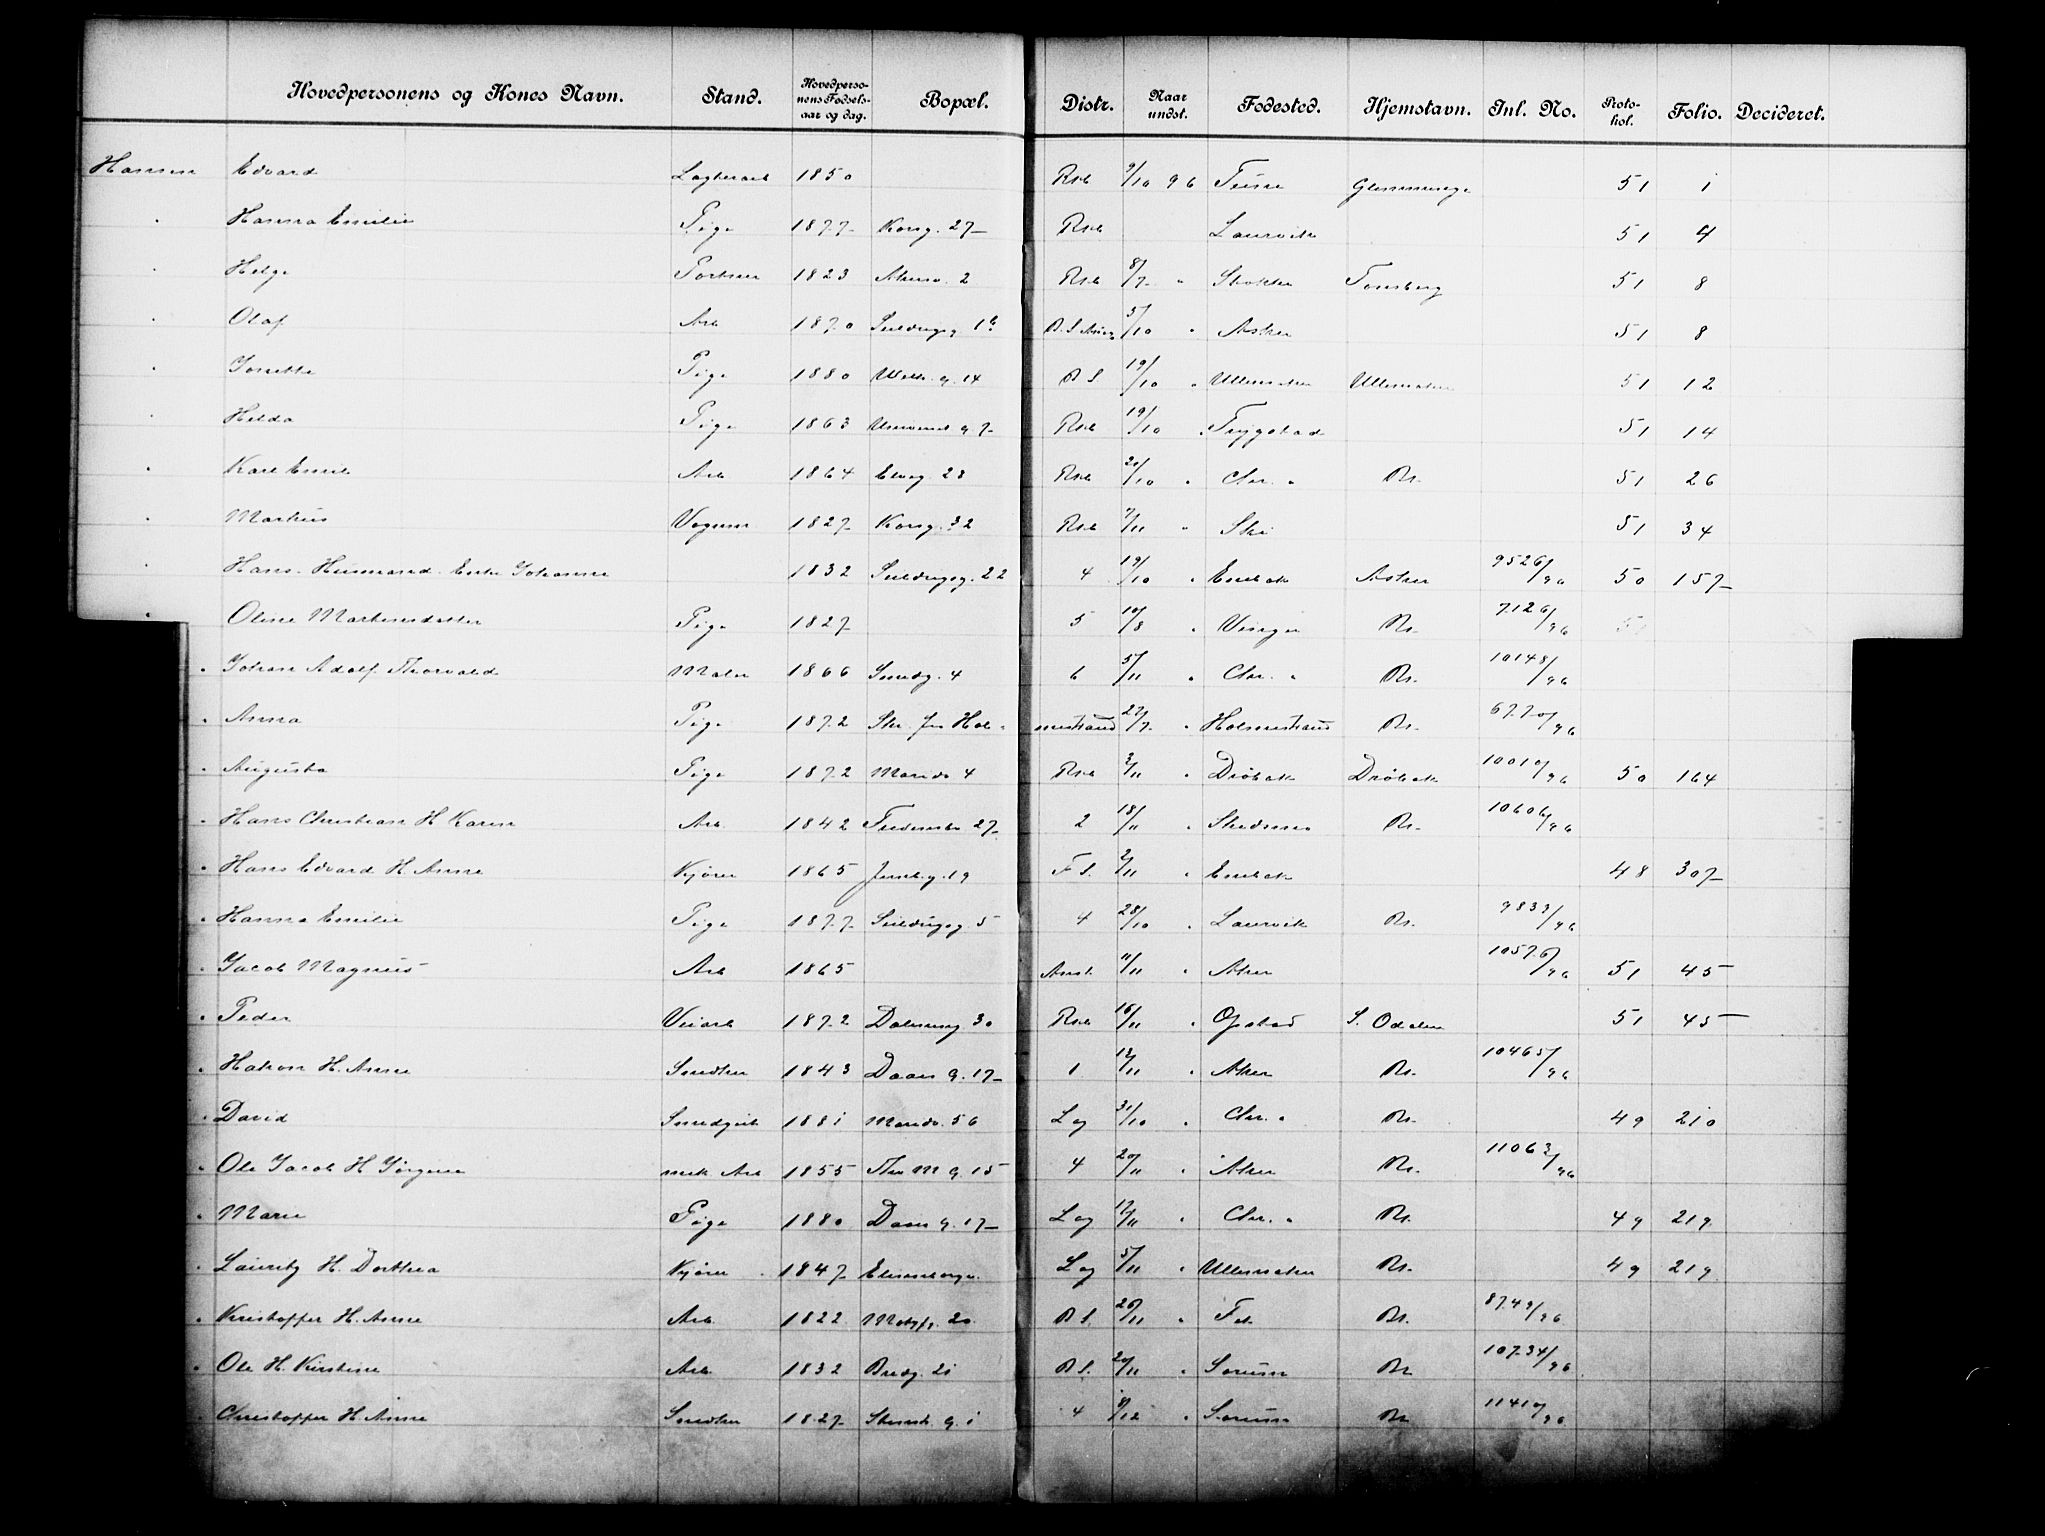 Hovedpersonens og Kones Navn. Stand. Hovedpersonens Fødselsaar og dag. Bopæl. Distr. Naar undst. Fødested. Hjemstavn. Inl. No. Protokol. Folio. Decideret.
Hansen Edvard 1850 Rst 9/10 96 51 1
" Hanna Emilie Pige 1877 Kong. 27 Rst Laurvik 51 4
" Helge 1823 Akersv. 2 Rst 8/7 " Stokke Tønsberg 51 8
" Olaf Arb 1870 5/10 " Asker 51 8
" Pige 1880 g. 14 B S 19/10 " Ullensaker Ullensaker 51 12
" Hilda Pige 1863 Rst 19/10 Trygstad 51 14
" Karl Emil Arb 1864 Elveg. 28 Rst 20/10 " Chr. " Br. 51 26
" Markus Vognm. 1827 Kong. 32 Rst 7/11 " Ski 51 34
" Hans Husmand Enke Johanne 1832 22 4 19/10 " Enebak Asker 9526/96 50 157
" Oline Martinsdatter Pige 1827 5 10/8 " Vinger Br. 7126/96
" Johan Adolf Thorvald Maler 1866 Smedg. 4 6 5/11 " Chr. " Br. 10148/96
" Anna Pige 1872 Str. fra Holmestrand 27/7 " Holmestrand Br. 6770/96
" Augusta Pige 1872 Marido 4 Rst 3/11 " Drøbak Drøbak 10010/96 50 164
" Hans Christian H Karen Arb 1842 27 2 18/11 " Br. 10606/96
" Hans Edvard H Anne Kjører 1865 19 F S. 2/11 " Enebak 48 307
" Hanna Emilie Pige 1877 5 4 28/10 " Laurvik Br. 9833/96
" Jacob Magnus Arb 1865 Anst. 11/11 " Aker 10576/96 51 45
" Peder Veiarb 1872 Dalsveg 30 Rst 16/11 " Opstad S. Odalen 51 45
" Hakon H. Anne Snedker 1843 Daas g. 17 1 12/11 " Aker Br. 10465/96
" David 1881 Marido. 56 Lag 31/10 " Chr. " Br. 49 210
" Ole Jacob H Jørgine mek Arb 1855 Thv M g. 15 4 20/11 " Aker Br. 11063/96
" Marie Pige 1880 Daas g. 17 Lag 17/11 " Chr. " Br. 49 219
" Lauritz H. Dorthea Kjører 1847 Lag 5/11 " Ullensaker Br. 49 219
" Kristoffer H. Anne Arb 1822 20 B S. 26/11 " Fet Br. 8749/96
" Ole H. Kirstine Arb 1832 Bredg. 21 B S. 20/11 " Sørum Br 10734/96
" Christoffer H. Anne Snedker 1827 g. 1 4 9/12 " Sørum Br 11410/96